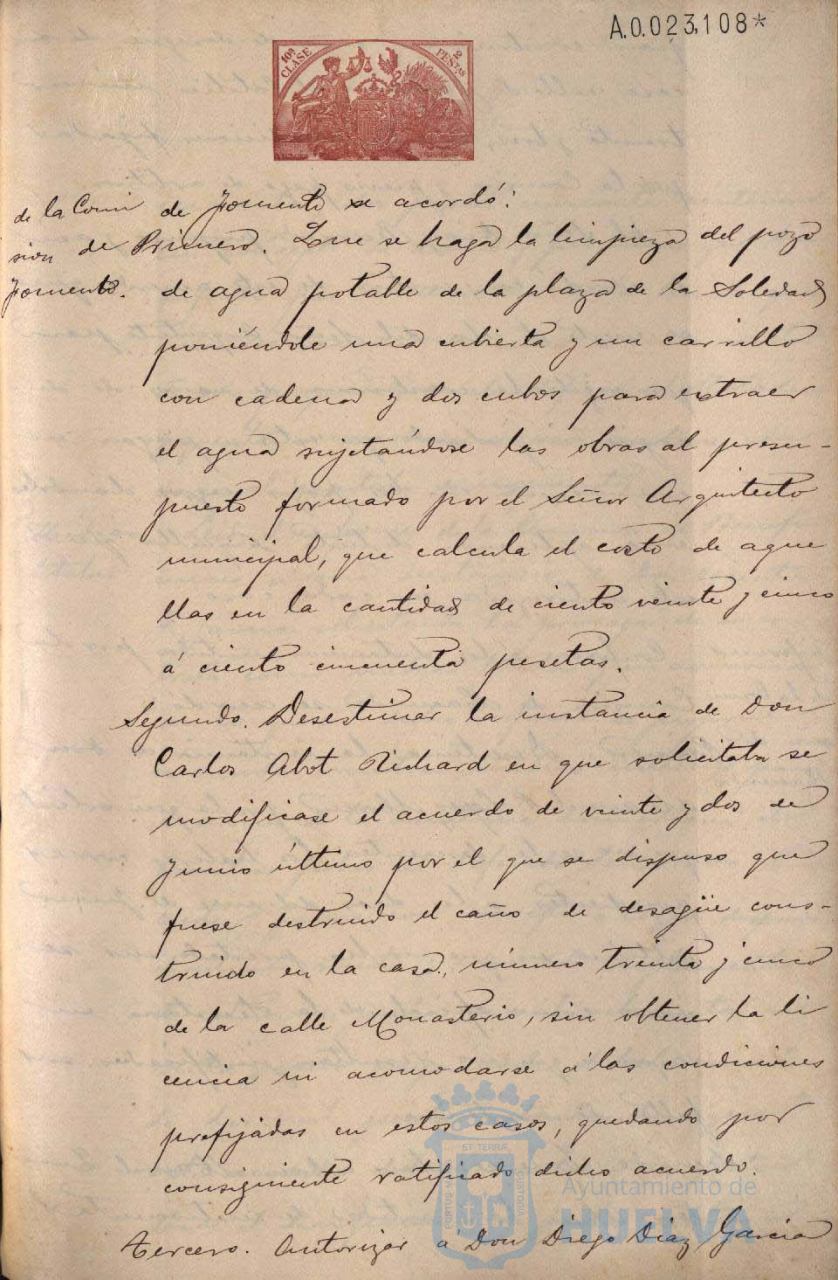 A.0.023,108*
10ª CLASE
2 PESTAS
de la Comi
sion de
Fomento.
de Fomento se acordó:
Primero. Que se haga la limpieza del pozo
de agua potable de la plaza de la Soledad
poniéndole una cubierta y un carrillo
con cadena y dos cubos para extraer
el agua sujetándose las obras al presu-
puesto formado por el Señor Arquitecto
municipal, que calcula el costo de aque
llas en la cantidad de ciento veinte y cinco
á ciento cincuenta pesetas.
Segundo. Desestimar la instancia de Don
Carlos Abot Richard en que solicitaba se
modificase el acuerdo de veinte y dos de
Junio último por el que se dispuso que
fuese destruido el caño de desagüe cons-
truido en la casa, número treinta y cinco
de la calle Monasterio, sin obtener la li
cencia ni acomodarse á las condiciones
prefijadas en estos casos, quedando por
consiguiente ratificado dicho acuerdo.
Tercero. Autorizar á Don Diego Díaz García
PORTUS
ST TERRA
CUSTODIA
Ayuntamiento de
HUELVA